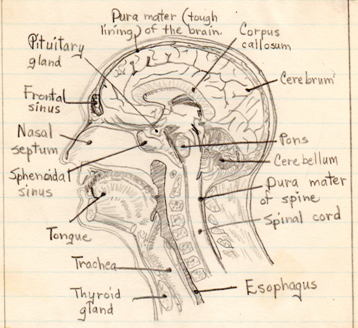 Dura mater (tough
lining) of the brain.
Pituitary
gland
Corpus
callosum
Cerebrum
Frontal
sinus
Nasal
septum
Pons
Sphenoidal
sinus
Cerebellum
Dura mater
of spine
Spinal cord
Tongue
Trachea
Esophagus
Thyroid
gland